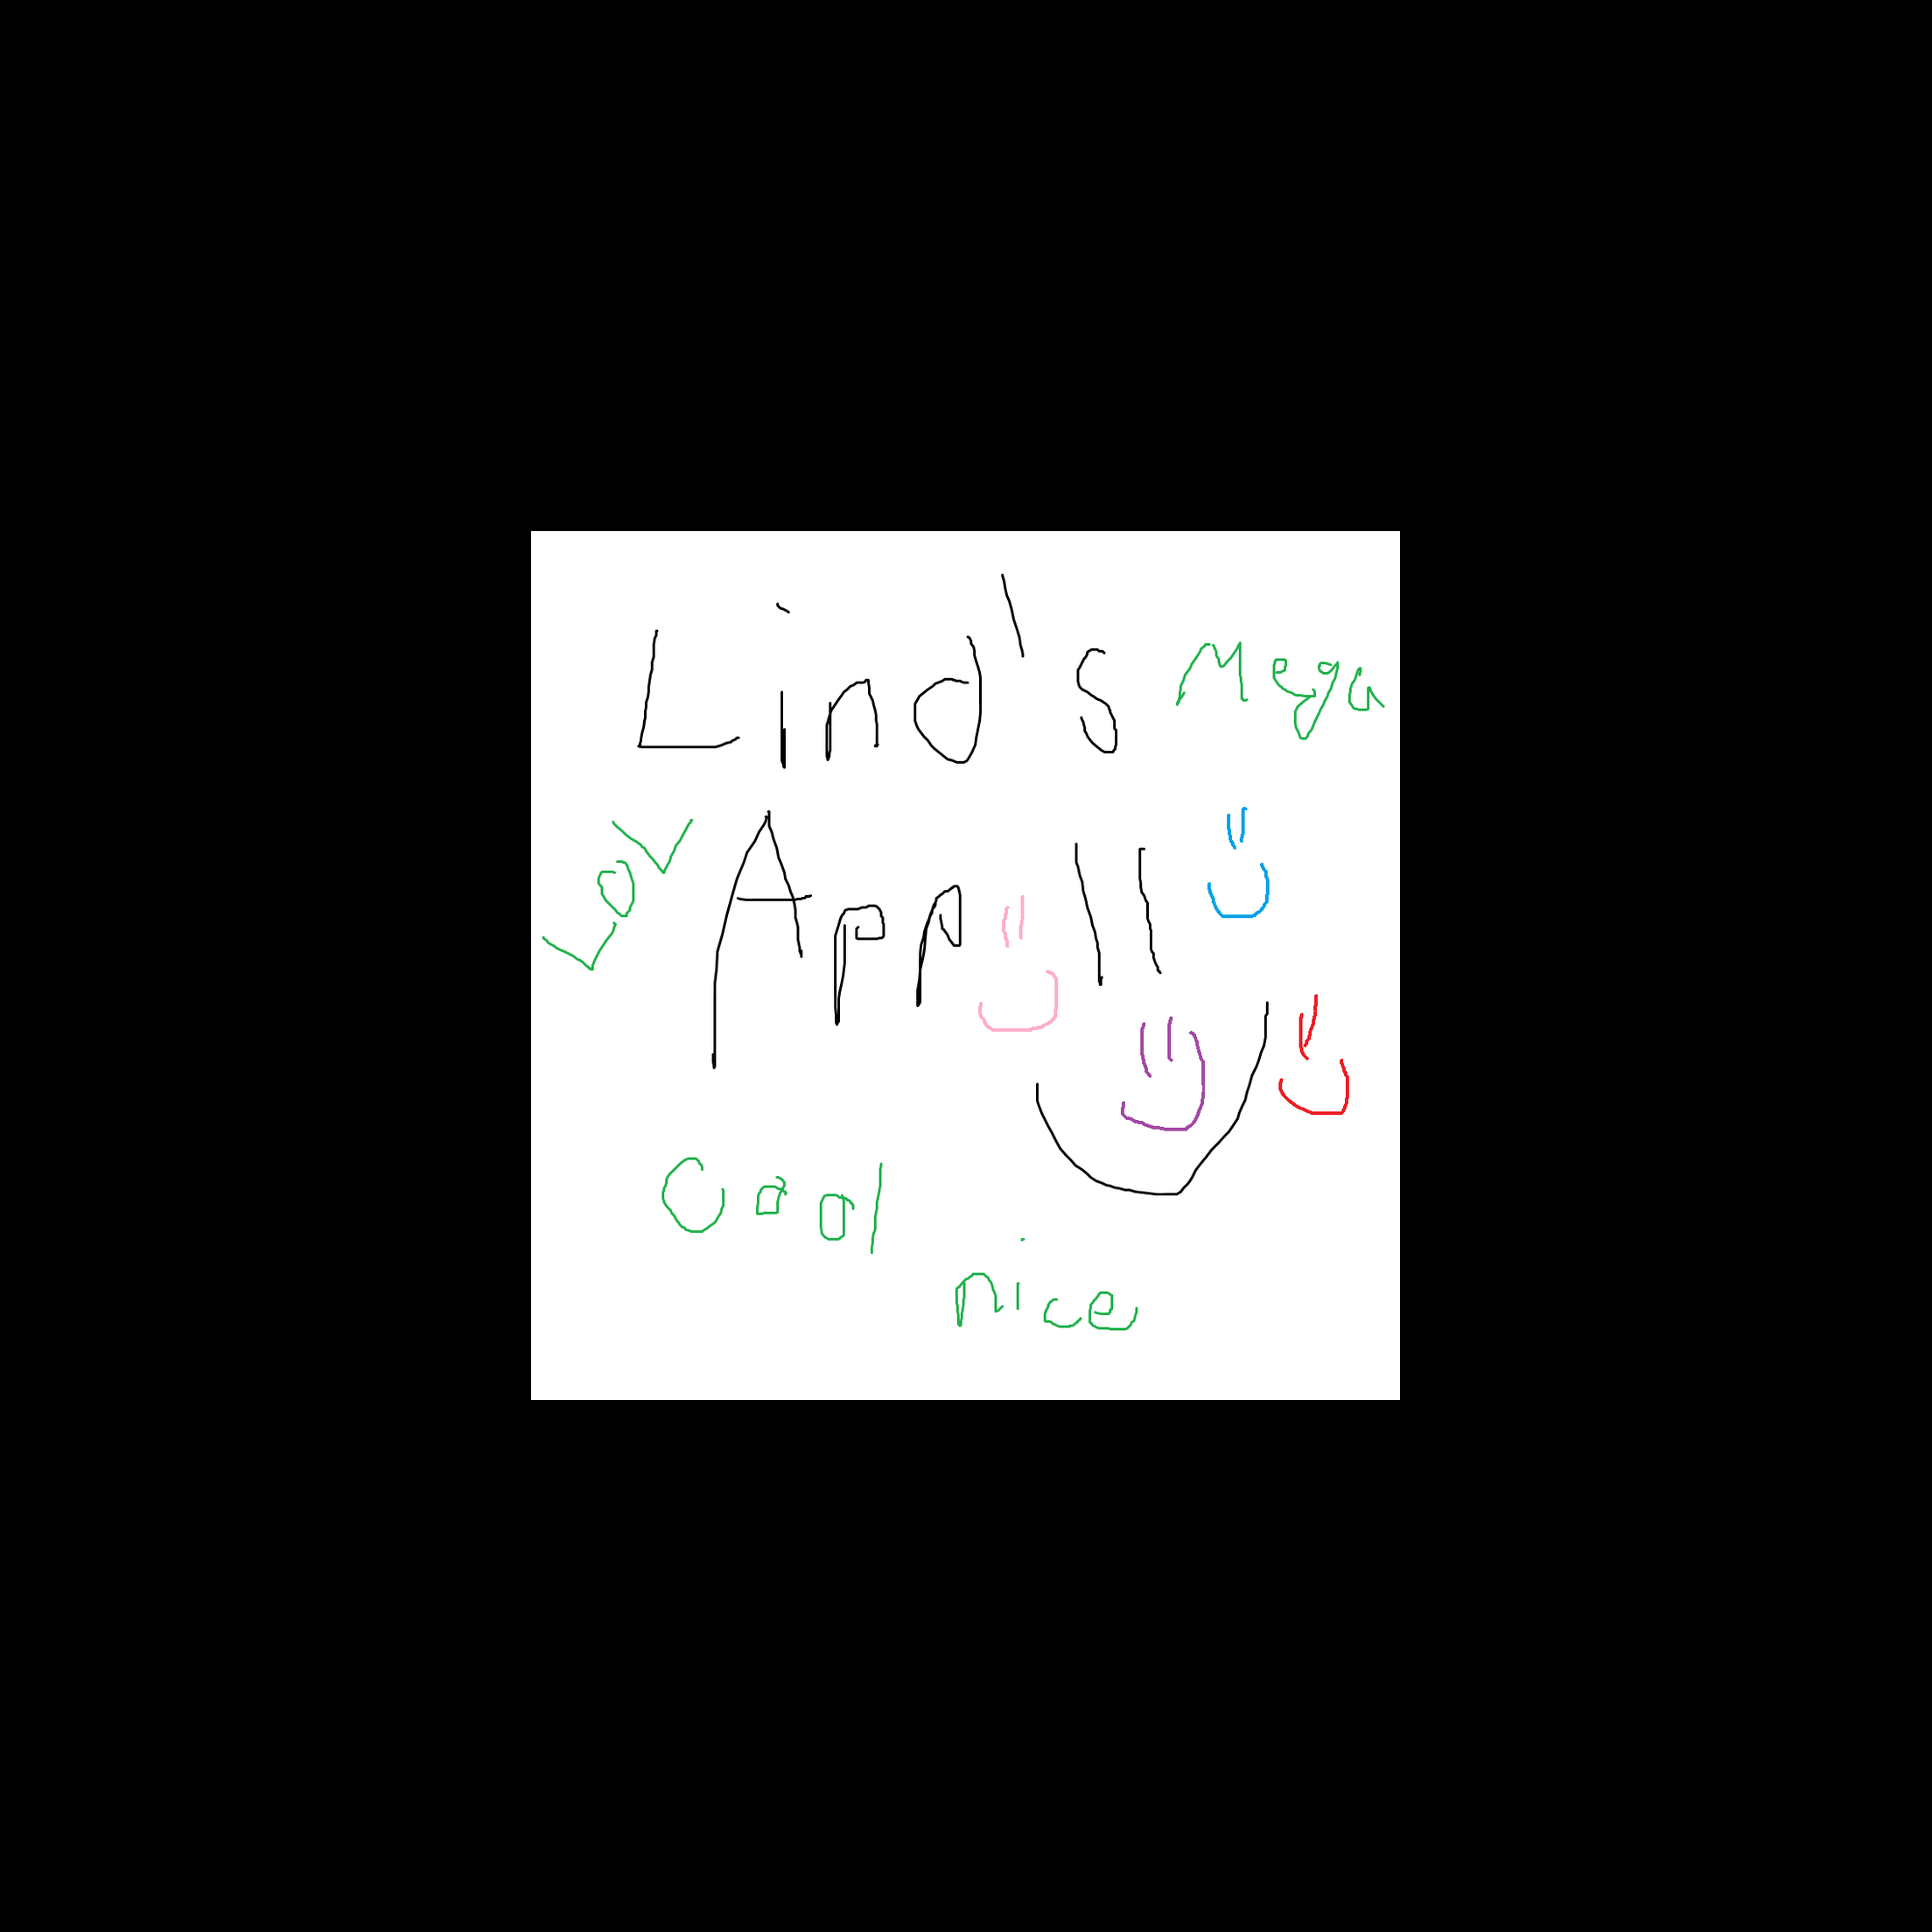 Lind's Mega
LOL
App
Cool
nice